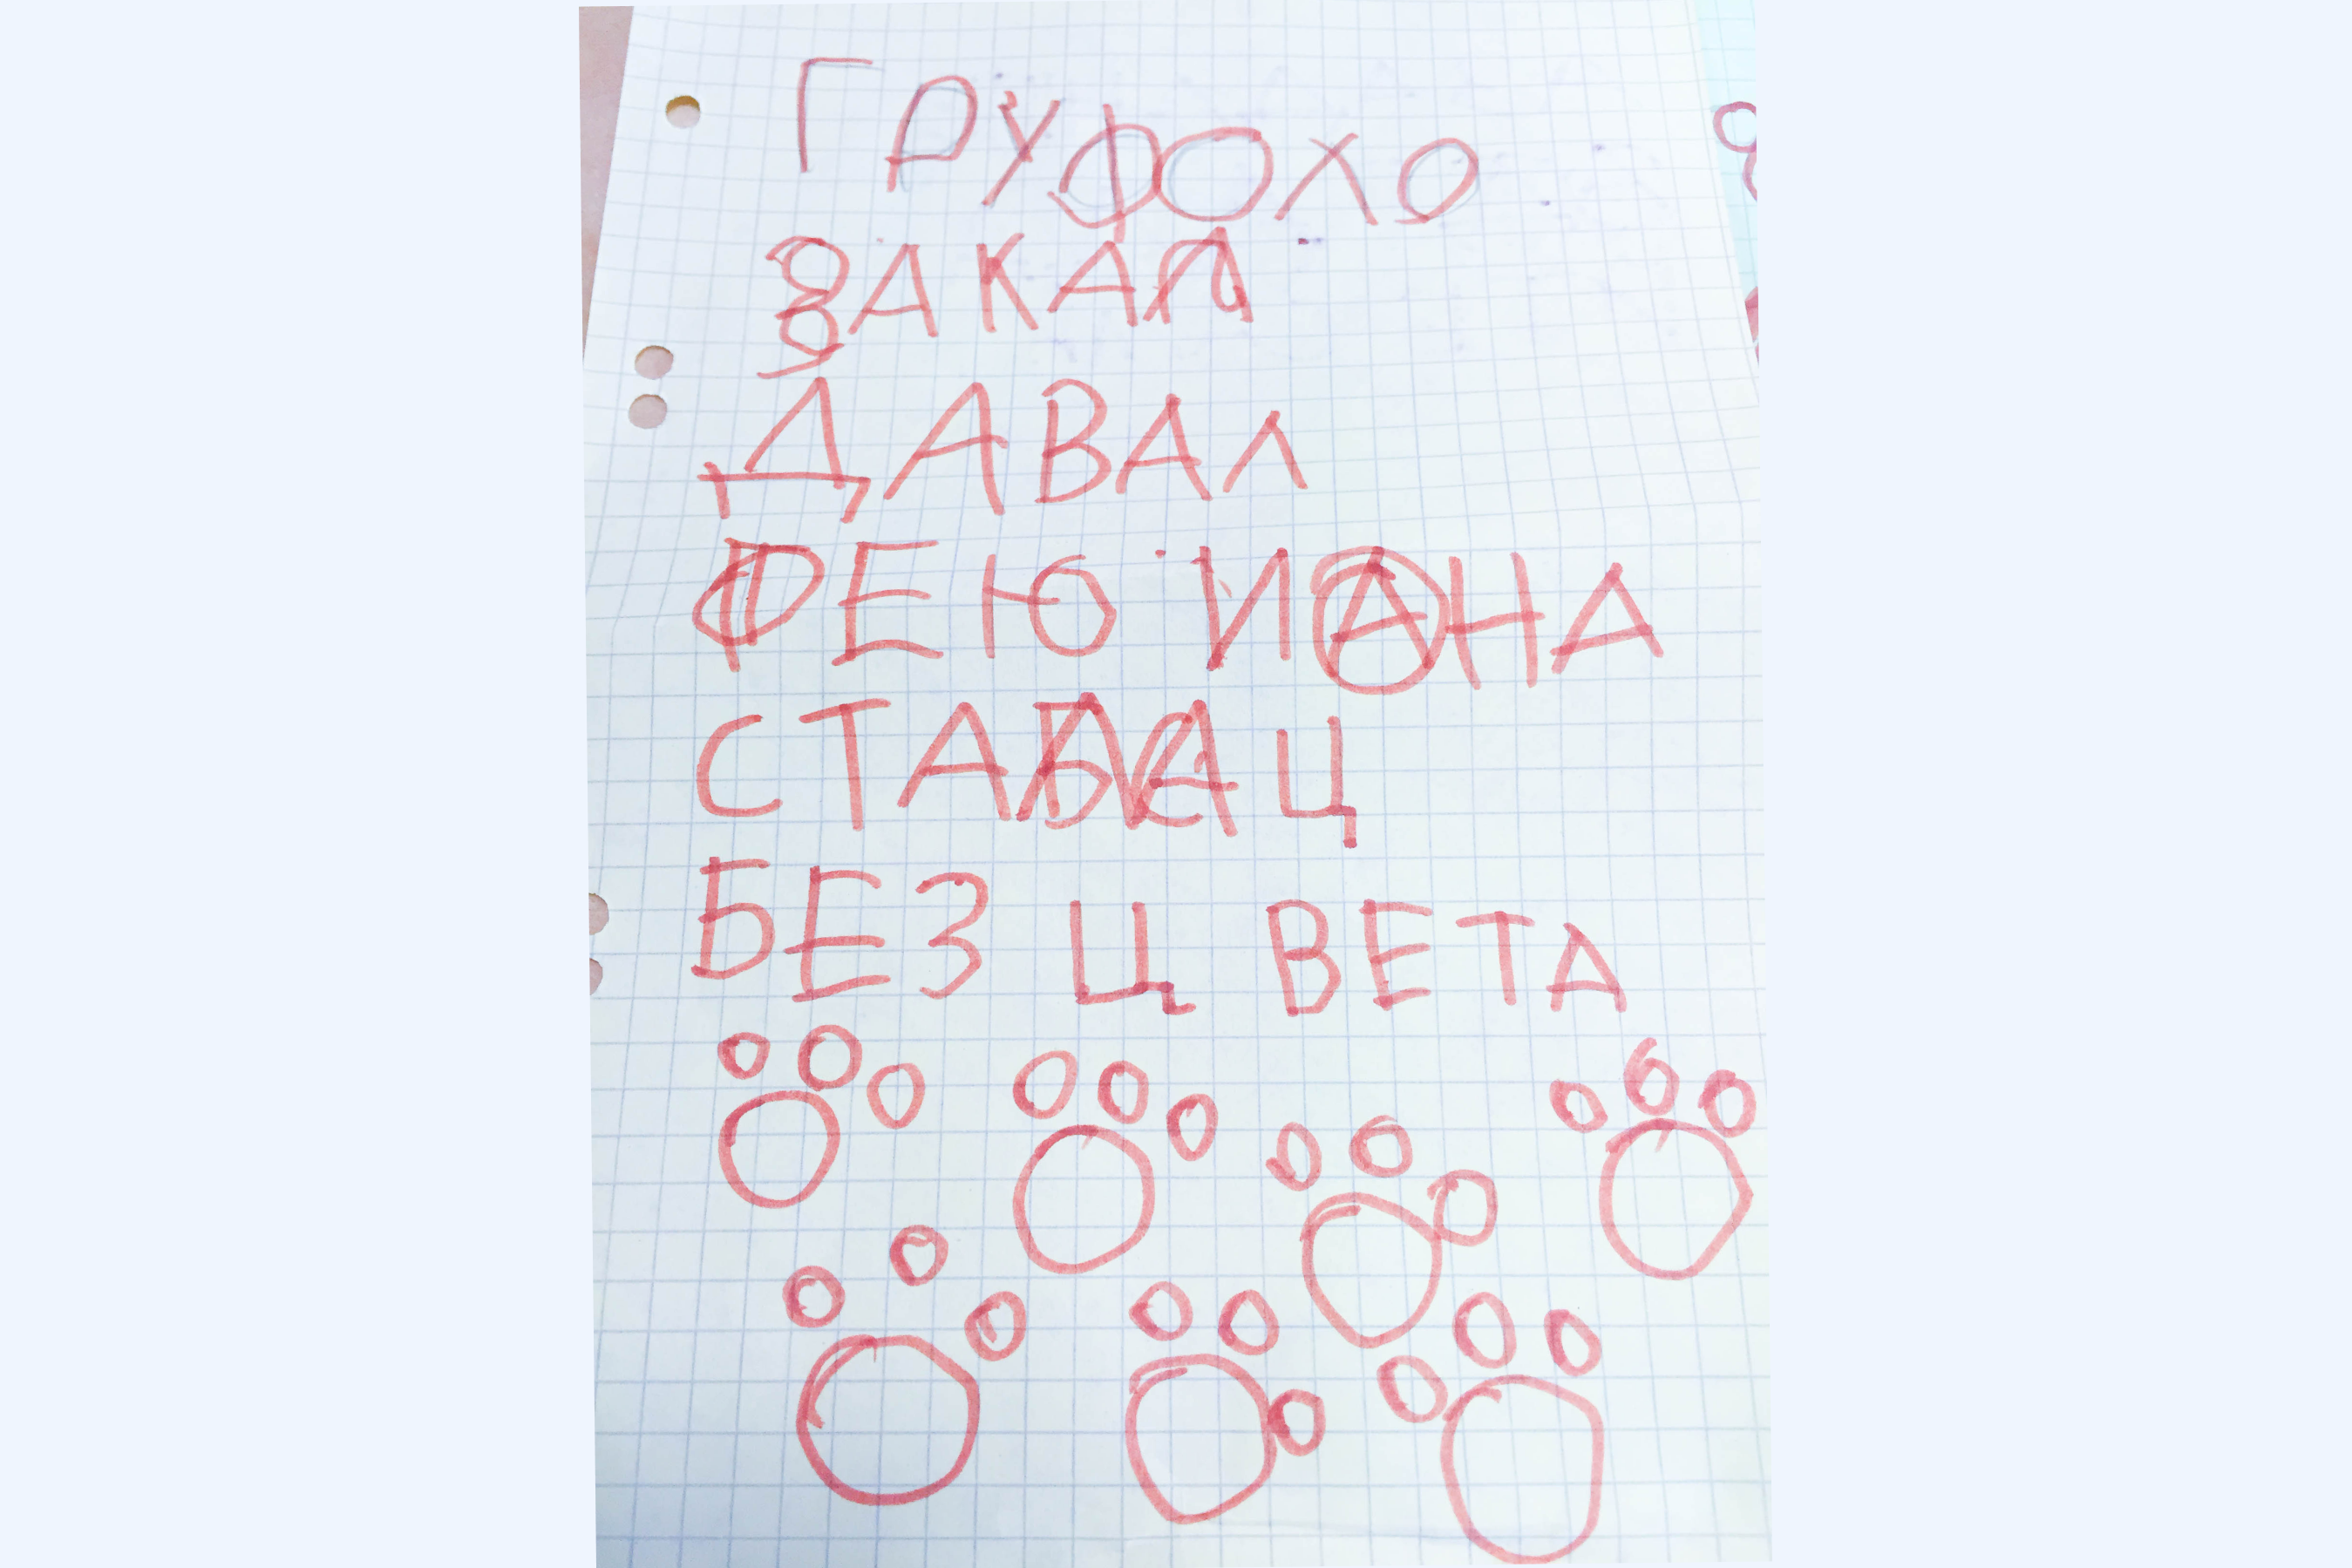 ГРУФОХО
ЗАКАЛ
ДАВАЛ
ФЕЮ И ОНА
СТАЛА Ц
БЕЗ ЦВЕТА